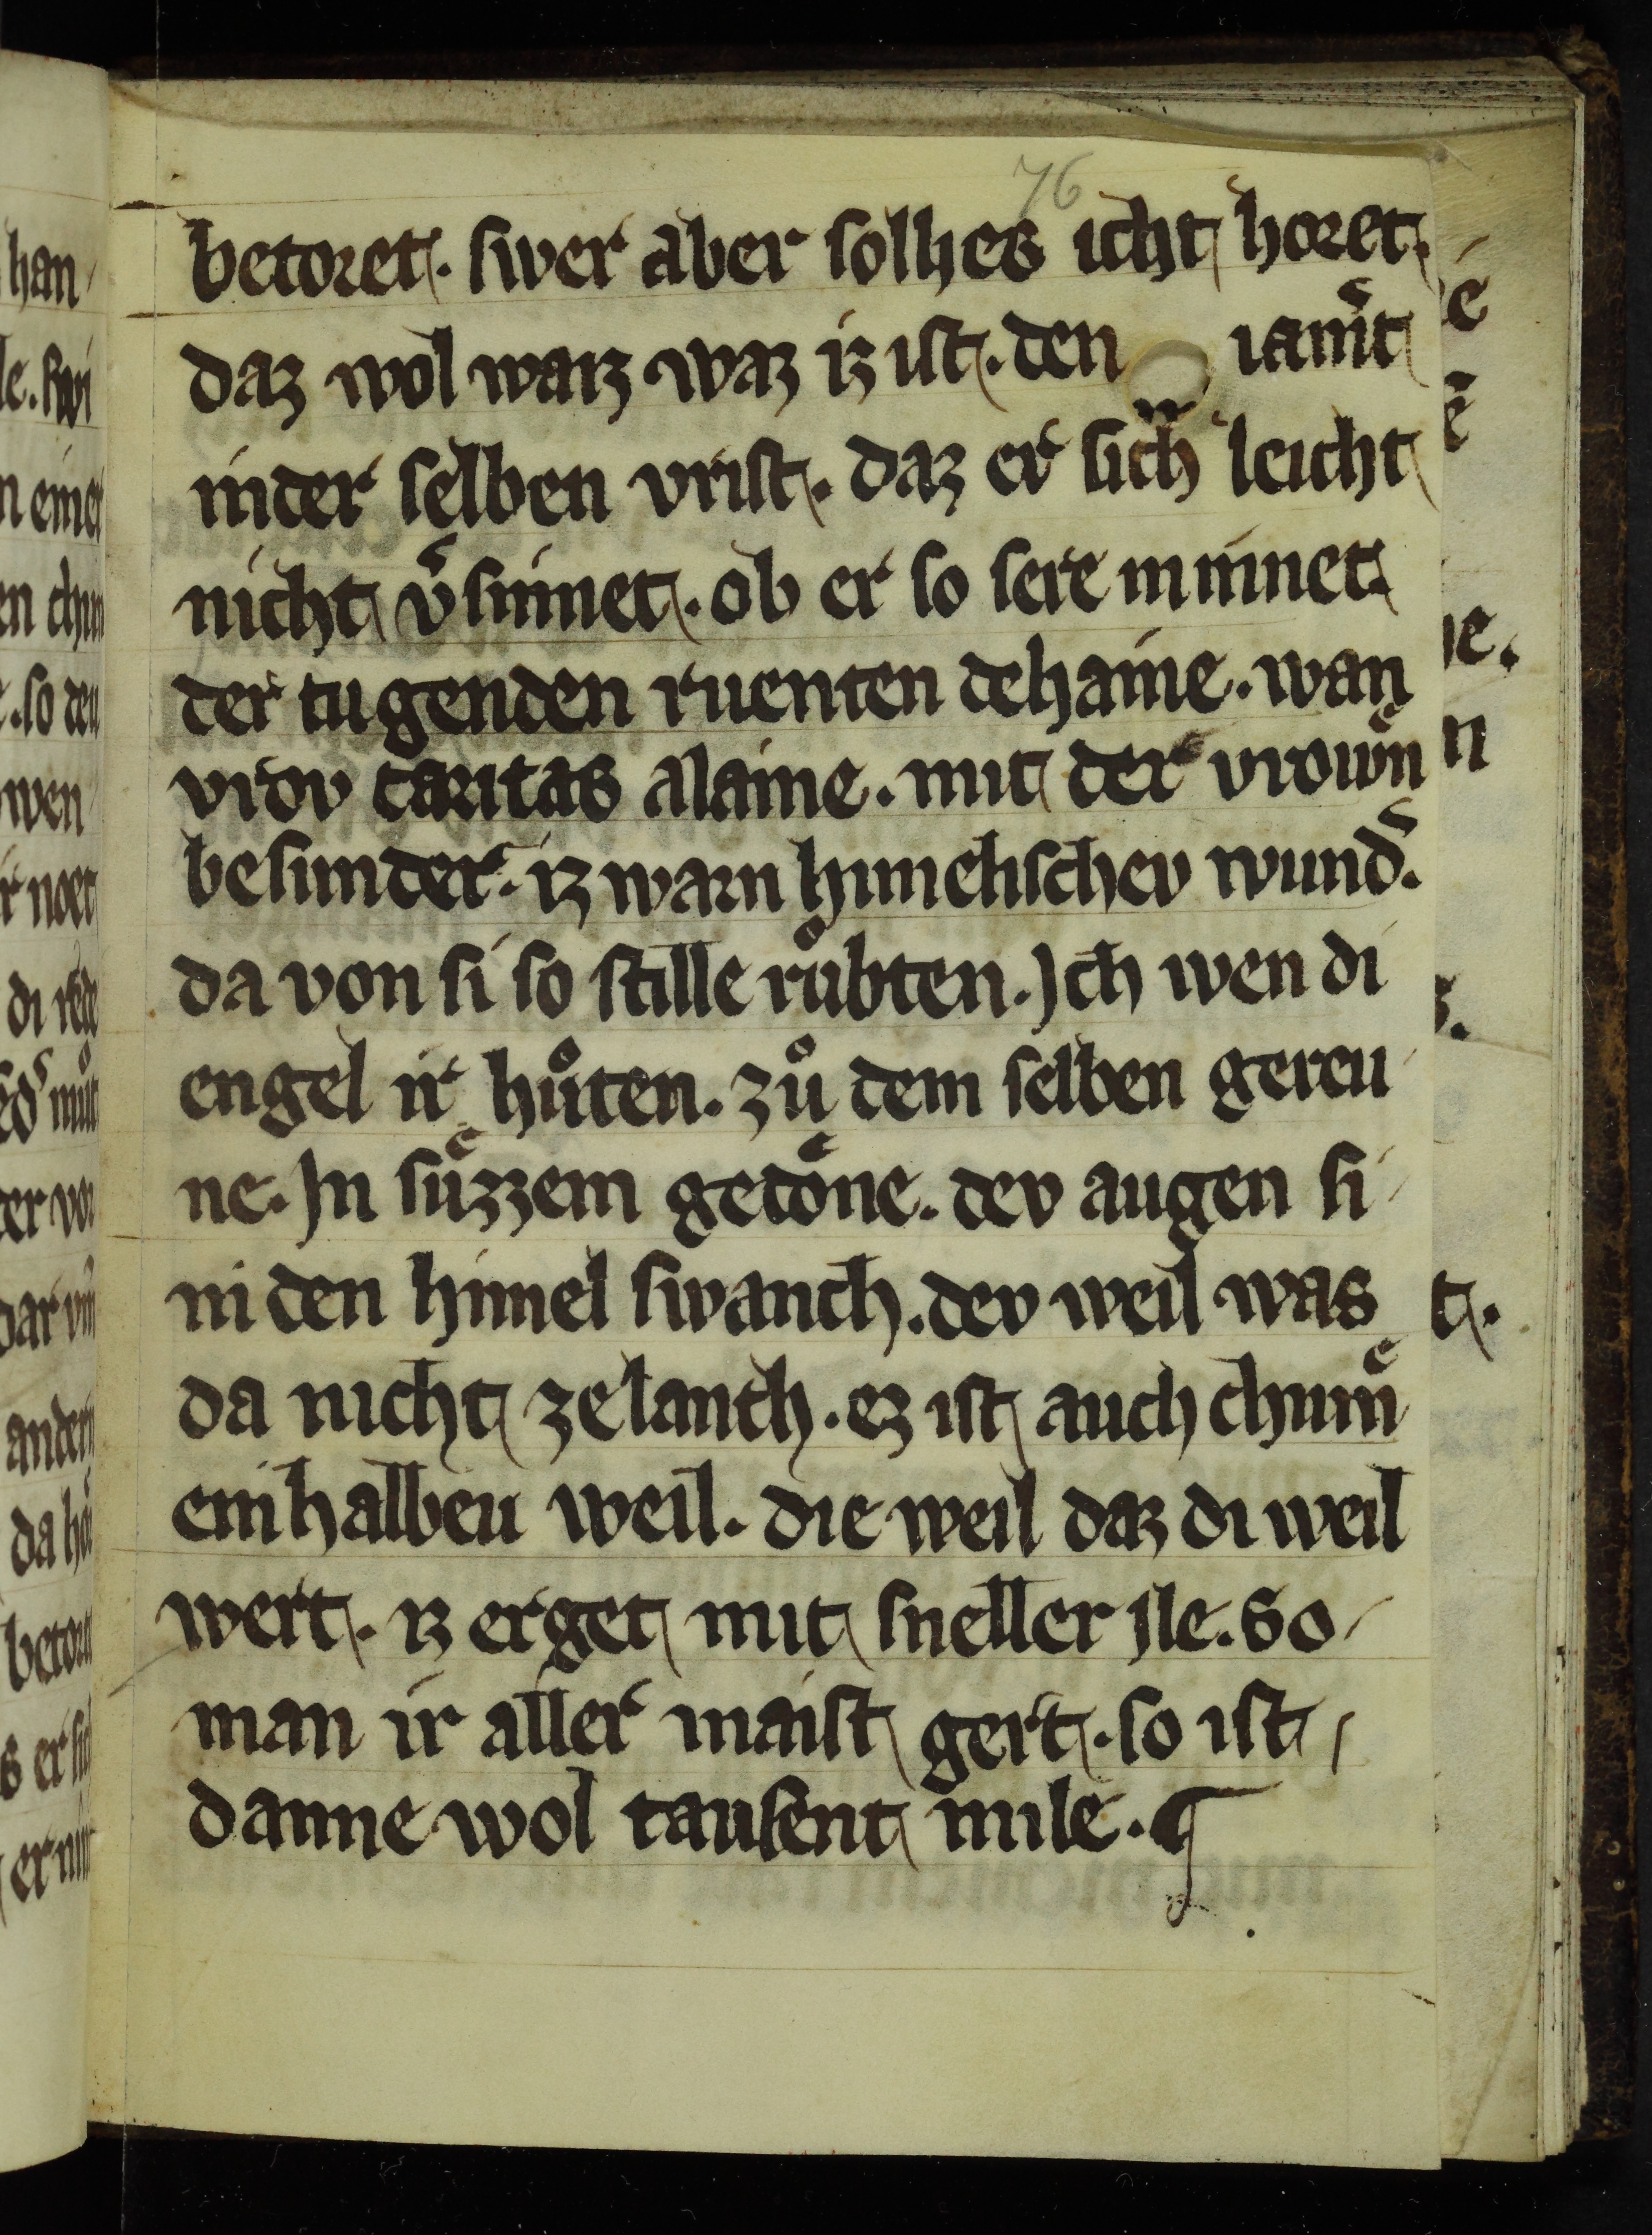 76
betoret. swer aber solhes icht horet.
daz wol warz waz iz ist. den iam̄t
inder selben vrist. daz er sich leicht
nicht v̄sinnet. ob er so sere minnet.
der tugenden ruenten dehaine. wan
vrov caritas alaine. mit der vrowen
besunder. iz warn himelischev wund̄.
da von si so stille růbten. Ich wen di
engel ir hůten. zů dem selben gereu
ne. In suͤzzem getoͤne. dev augen si
in den himel swanch. dev weil was
da nicht ze lanch. ez ist auch chum
ein halbeu weil. die weil daz di weil
wert. iz erget mit sneller ile. So
man ir aller maist gert. so ist
danne wol tausent mile. ¶